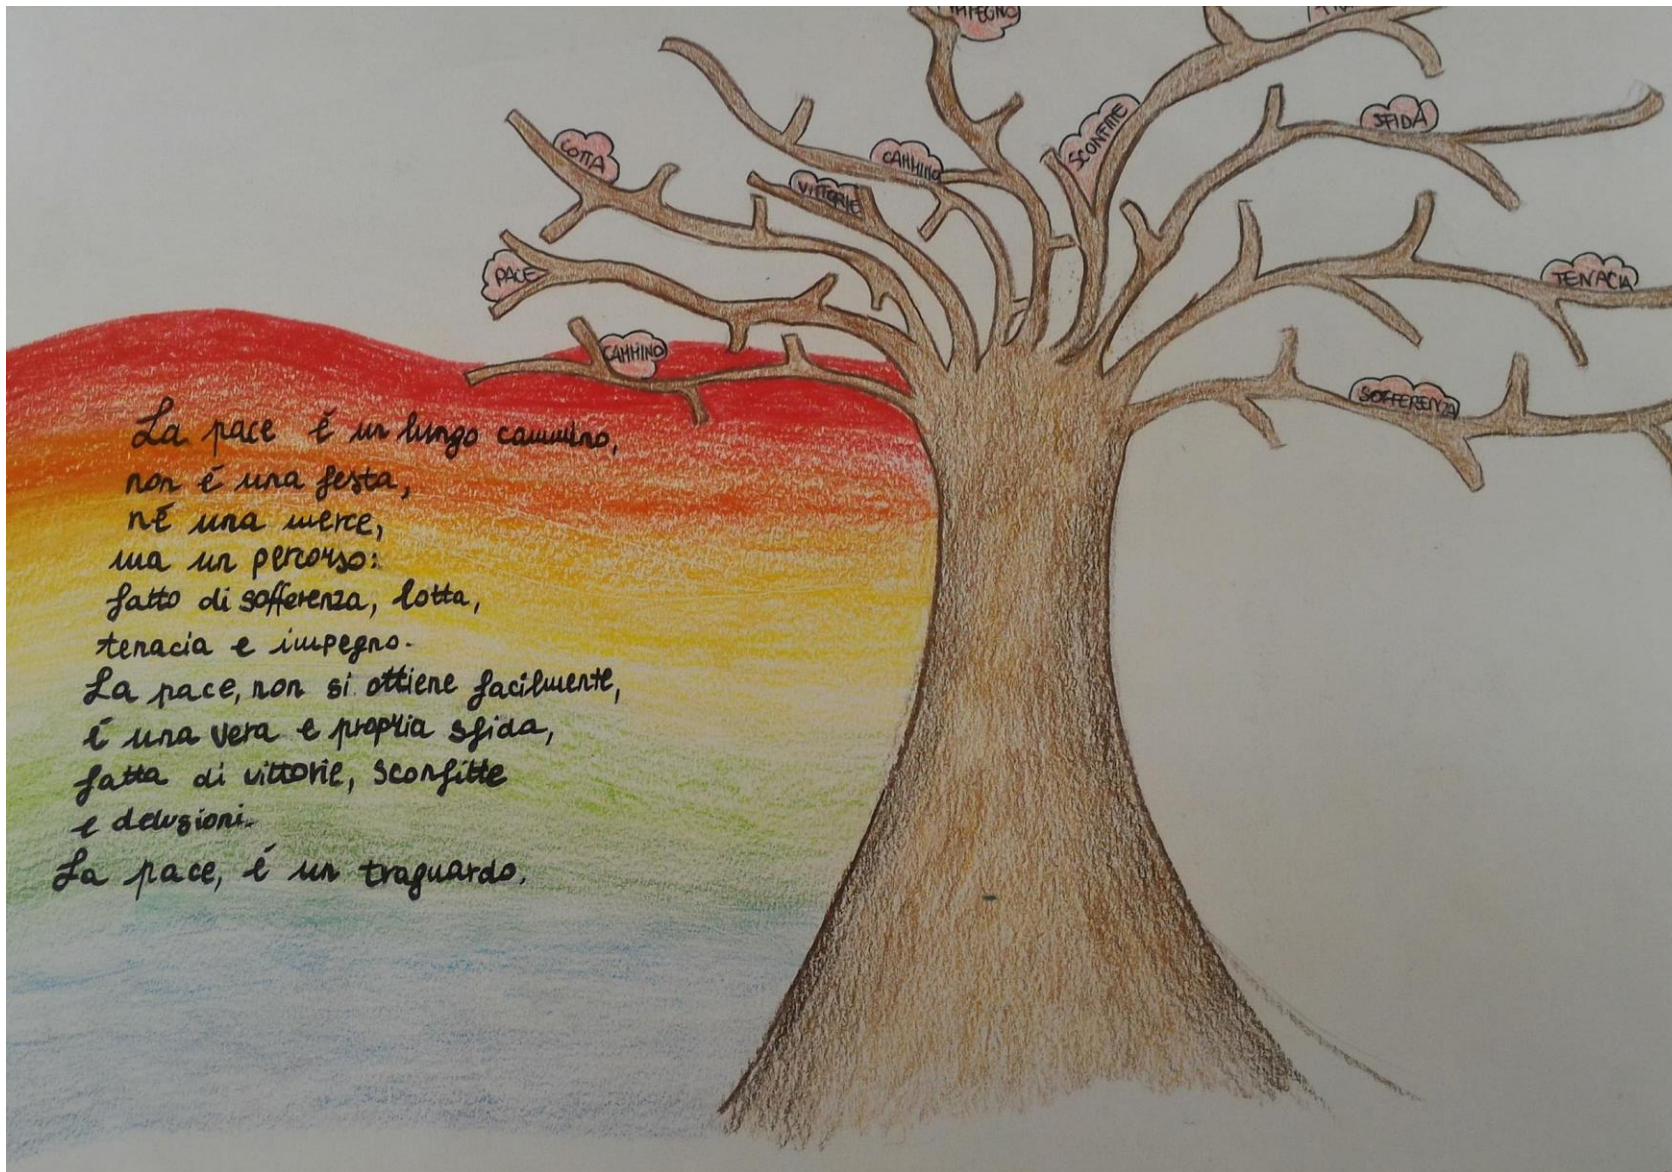 IMPEGNO
LOTTA
CAMMINO
SCONFITTE
SFIDA
VITTORIE
PACE
TENACIA
CAMMINO
SOFFERENZA
La pace é un lungo cammino,
non é una festa,
né una merce,
ma un percorso:
fatto di sofferenza, lotta,
tenacia e impegno.
La pace, non si ottiene facilmente,
é una vera e propria sfida,
fatta di vittorie, sconfitte
e delusioni.
La pace, é un traguardo.